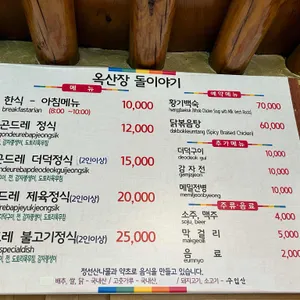 옥산장 돌이야기
메 뉴
한식 - 아침메뉴 10,000
breakfastarian (8:00 ~10:00)
곤드레 정식 12,000
감자뱅이, 도토리묵무침
곤드레 더덕정식(2인이상) 15,000
드레 제육정식(2인이상) 20,000
레 불고기정식(2인이상) 25,000
예약메뉴
황기백숙 70,000
닭볶음탕 60,000
dakbokkeumtang (Spicy Braised Chicken)
추가메뉴
더덕구이 10,000
deodeok gui
감 자 전 10,000
gamjajeon
메밀전병 10,000
주류음료
소주, 맥주 4,000
soju, beer
막 걸 리 5,000
makgeolli
음 료 2,000
eumnyo
정선산나물과 약초로 음식을 만들고 있습니다.
배추, 쌀, 닭 - 국내산 / 고춧가루 - 국내산,